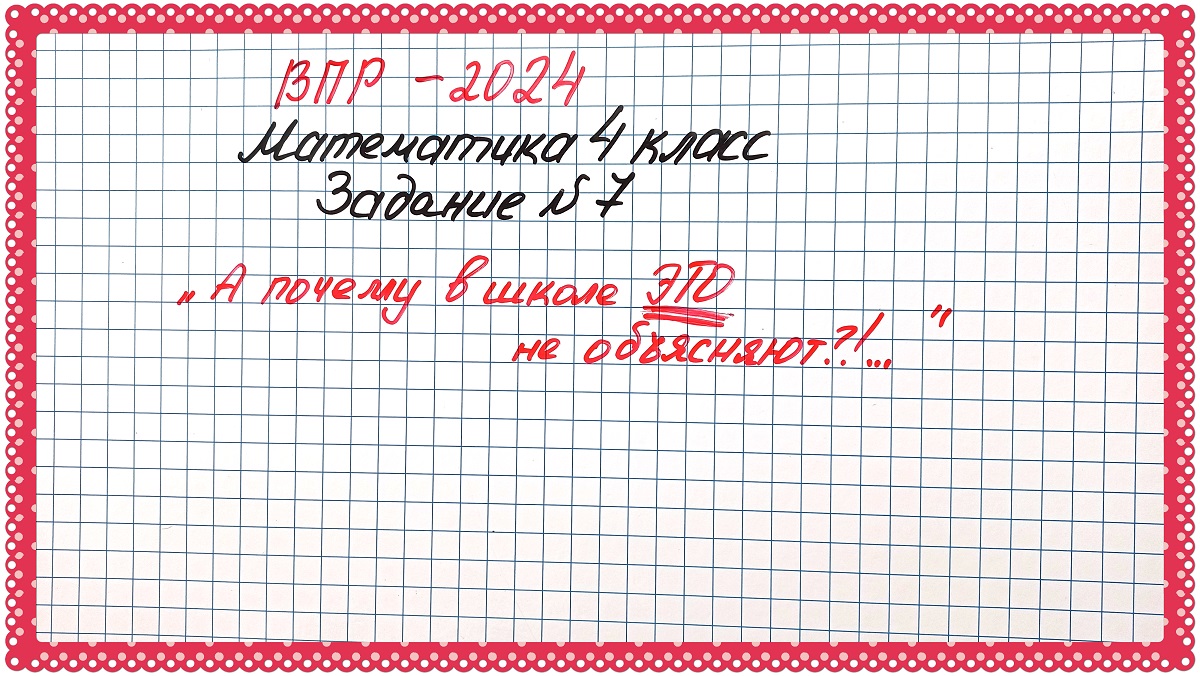 ВПР - 2024
Математика 4 класс
Задание №7
„А почему в школе ЭТО
не объясняют?!... "